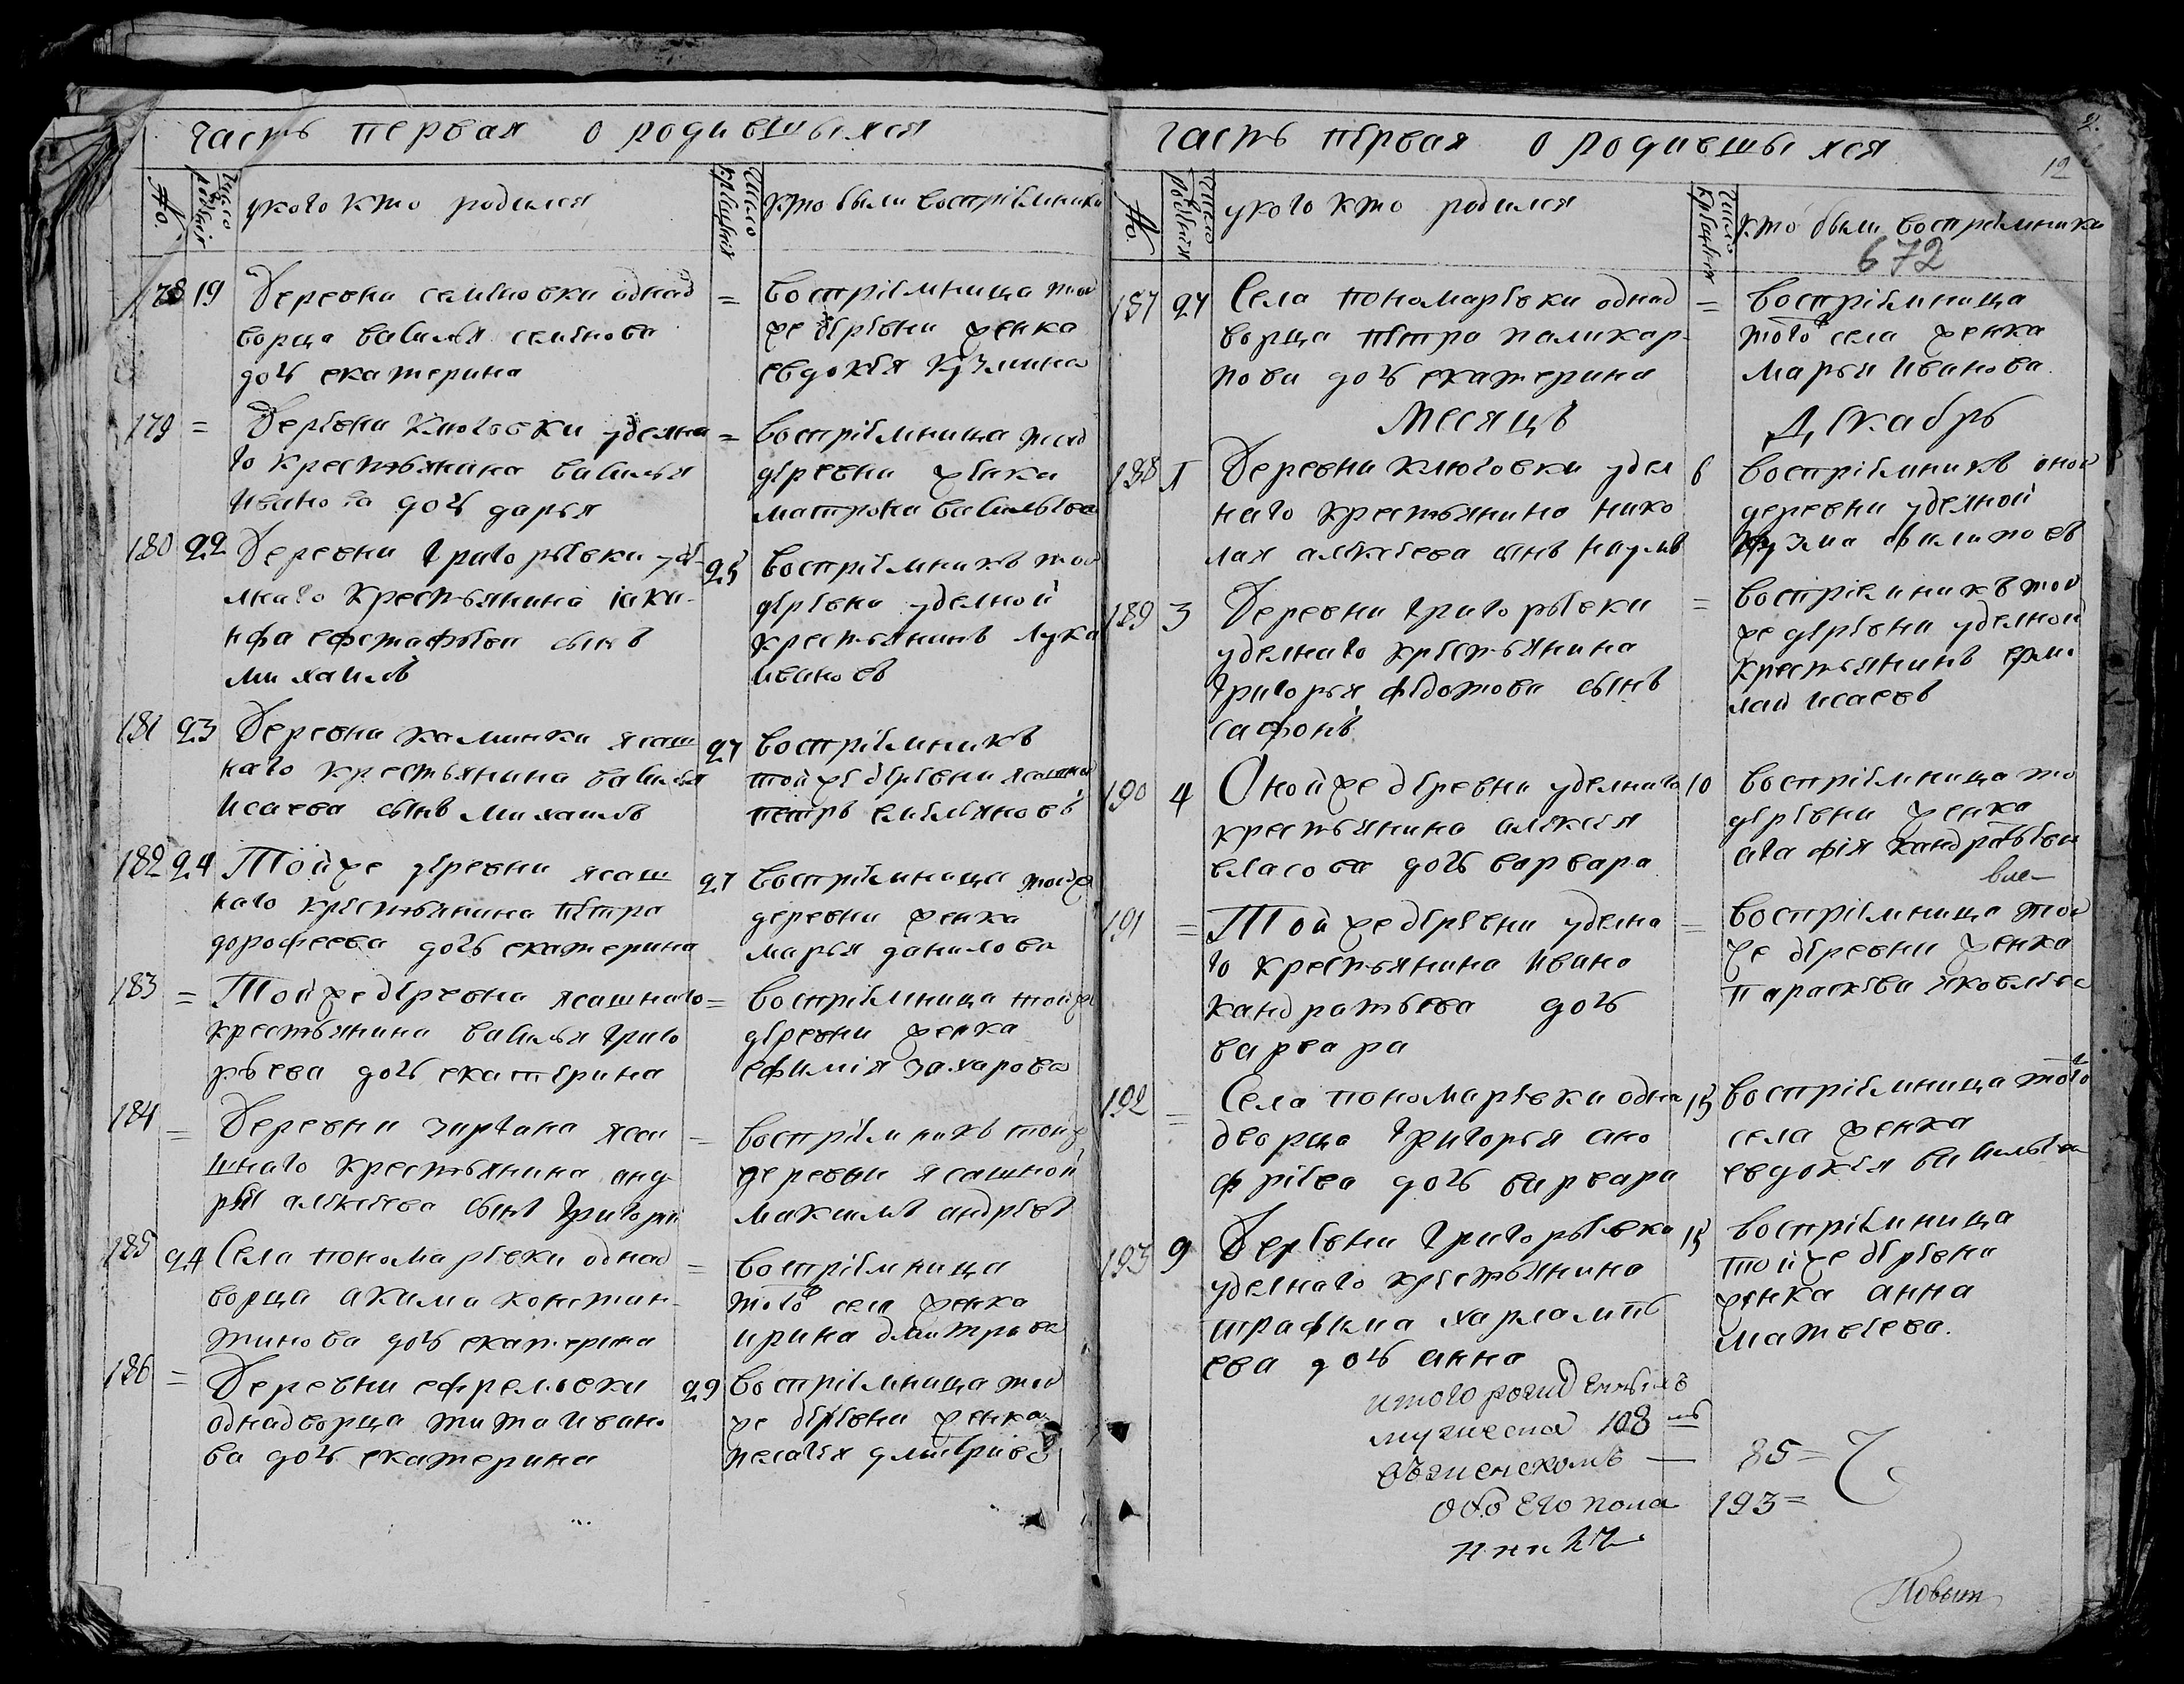 часть первая о родившыхся
№.
число рождѣнія
укого кто родился
число крѣщѣнія
кто были воспрiемники
178 19 Деревни семѣновки однад
ворца василья семѣнова
дочь екатерина
= воспрiемница той
же дѣрѣвни женка
евдокѣя кузмина
179 = Дерѣвни ключовки уделна
го крестьянина василья
иванова дочь дарья
= воспрiемница той
дѣревни жѣнка
матрона васильѣва
180 22 Деревни григорьѣвки удѣ
лнаго крестьянина iаки
нфа ефстафьева сынъ
михаилъ
25 воспрiемникъ той
дѣрѣвни уделной
крестьянинъ лука
ивановъ
181 23 Деревни калинки ясаш
наго крестьянина василья
исаева сынъ михаилъ
27 воспрiемникъ
тойжѣ дѣрѣвни ясашной
петръ емѣльяновъ
182 24 Тойже дѣревни ясаш
наго крѣстьянина пѣтра
дорофеева дочь екатерина
27 воспрiемница тойже
деревни женка
марья данилова
183 = Тойже дѣревни ясашнаго
крестьянина василья григо
рьева дочь екатѣрина
= воспрiемница тойже
дѣревни женка
ефимiя захарова
184 = Деревни зиргана ясаш
шнаго крестьянина анд
рѣя алѣксѣева сынъ григорий
= воспрiемникъ тойж
деревни ясашной
максимъ андрѣевъ
185 24 Села пономарѣвки однад
ворца акима констан
тинова дочь екатерина
= воспрiемница
того села женка
ирина дмитрева
186 = Деревни ефремовки
однадворца тита ивано
ва дочь екатерина
29 воспрiемница той
же дѣрѣвни женка
пелагѣя дмитриева
часть пѣрвая о родившыхся
2.
12
№.
число рождѣния
укого кто родился
число крѣщѣния
кто были воспрiемники
672
187 27 Села пономарѣвки однад
ворца пѣтра паликар
пова дочь екатерина
= воспрiемница
того села женка
марья иванова.
Месяцъ Дѣкабрь
188 1 Деревни ключовки удел
наго крестьянина нико
лая алѣксѣева сынъ наумъ
6 воспрiемникъ оной
деревни уделной
кузма филиповъ
189 3 Деревни григорьѣвки
уделнаго крѣстьянина
григорья фѣдотова сынъ
сафонъ
= воспрiемникъ той
же дѣрѣвни уделной
крестьянинъ ерма
лай исаевъ
190 4 Оной же дѣревни уделнаго
крестьянина алѣксѣя
власова дочь варвара
10 воспрiемница то
дѣрѣвни женка
агафiя кандратьѣва
191 = Той же дѣрѣвни уделна
го крестьянина ивана
кандратьева дочь
варвара
= воспрiемница той
же дѣревни женка
параскѣва яковлѣва
192 = Села пономарѣвки одна
дворца григорья ано
фрѣева дочь варвара
15 воспрiемница того
села женка
евдокѣя васильѣва
193 9 Дерѣвни григорьѣвки
уделнаго крѣстьянина
трафима харлампь
ева дочь анна
15 воспрiемница
той же дѣрѣвни
жѣнка анна
матвѣева.
итого рожденныхъ
мужеска 108
въ женскомъ — 85=
обоего пола 193=